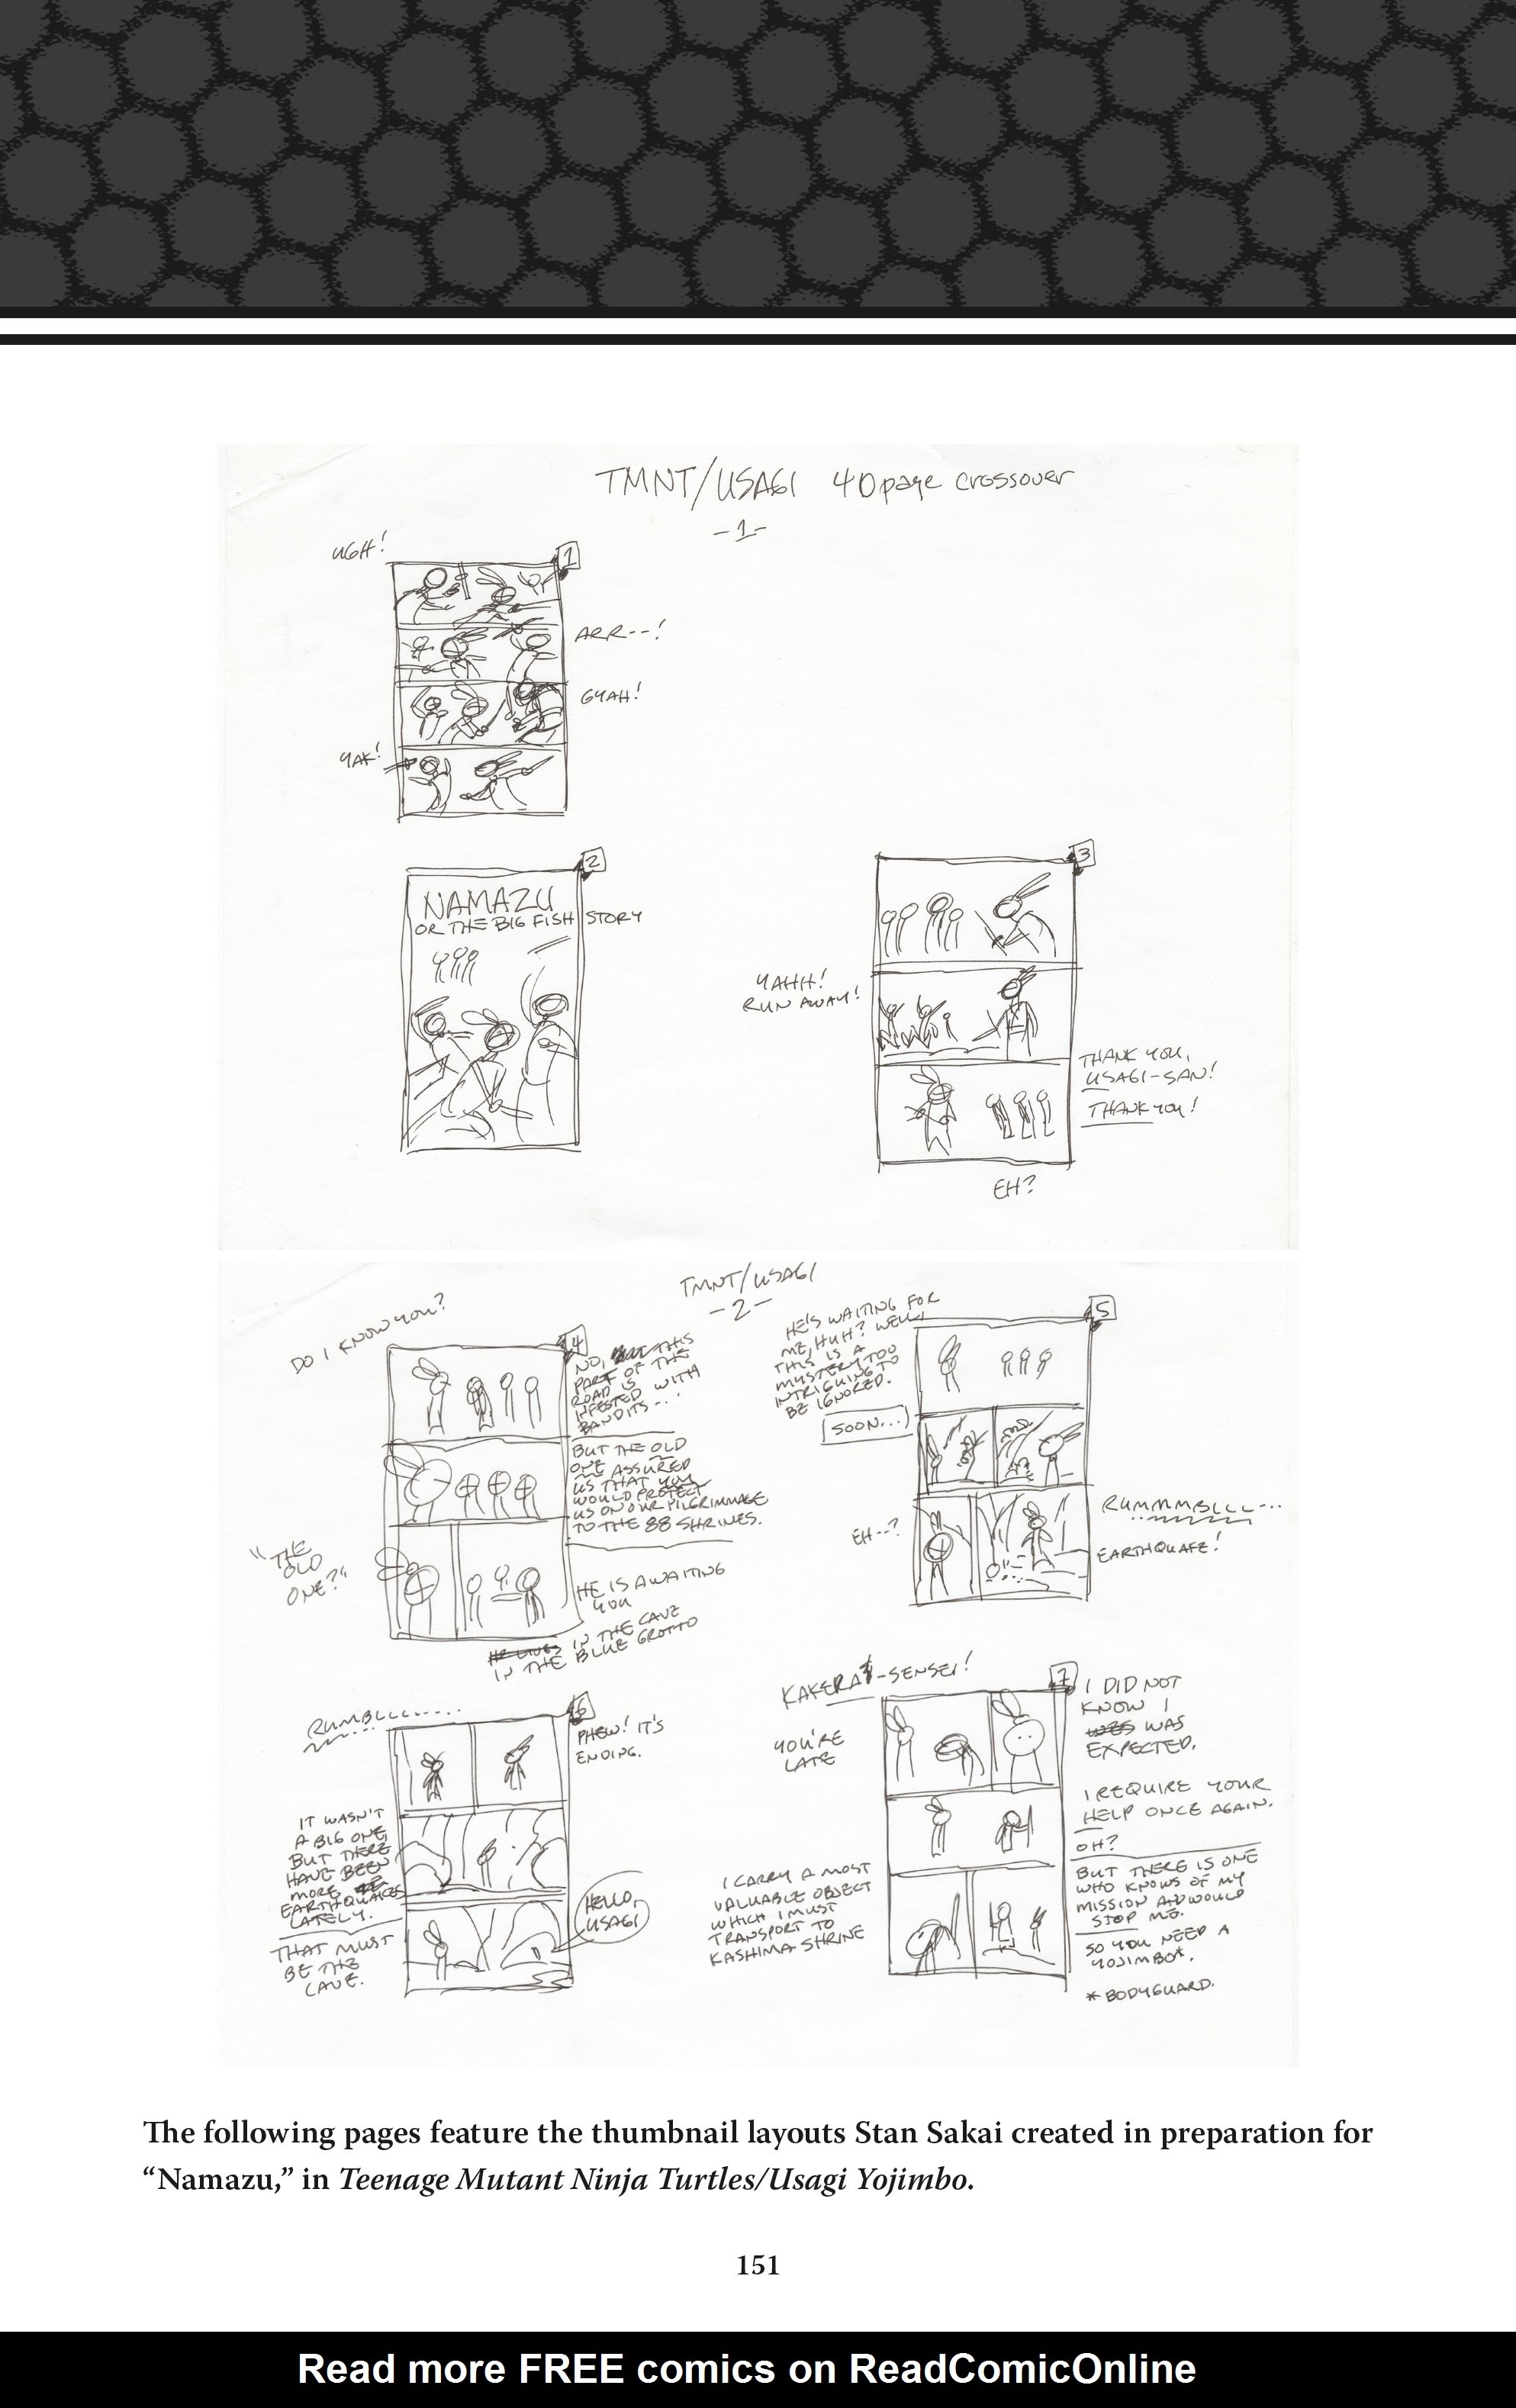 TMNT/USAGI 40 page crossover
-1-
UGH!
1
ARR--!
GYAH!
YAK!
2
NAMAZU
OR THE BIG FISH STORY
3
YAHH!
RUN AWAY!
THANK YOU,
USAGI-SAN!
THANK YOU!
EH?
TMNT/USAGI
-2-
DO I KNOW YOU?
4
NO, THIS
PART OF THE
ROAD IS
INFESTED WITH
BANDITS...
BUT THE OLD
ONE ASSURED
US THAT YOU
WOULD PROTECT
US ON OUR PILGRIMMAGE
TO THE 88 SHRINES.
"THE
OLD
ONE?"
HE IS AWAITING
YOU
HE LIVES IN THE CAVE
IN THE BLUE GROTTO
5
HE'S WAITING FOR
ME, HUH? WELL,
THIS IS A
MYSTERY TOO
INTRIGUING TO
BE IGNORED.
SOON...
EH--?
RUMMMBLLL---
EARTHQUAKE!
6
RUMBLLL.....
PHEW! IT'S
ENDING.
IT WASN'T
A BIG ONE,
BUT THERE
HAVE BEEN
MORE
EARTHQUAKES
LATELY.
THAT MUST
BE THE
CAVE.
HELLO,
USAGI
7
KAKERA-SENSEI!
YOU'RE
LATE
I DID NOT
KNOW I
WAS
EXPECTED.
I REQUIRE YOUR
HELP ONCE AGAIN.
OH?
I CARRY A MOST
VALUABLE OBJECT
WHICH I MUST
TRANSPORT TO
KASHIMA SHRINE
BUT THERE IS ONE
WHO KNOWS OF MY
MISSION AND WOULD
STOP ME.
SO YOU NEED A
YOJIMBO*.
*BODYGUARD.
The following pages feature the thumbnail layouts Stan Sakai created in preparation for
“Namazu,” in Teenage Mutant Ninja Turtles/Usagi Yojimbo.
151
Read more FREE comics on ReadComicOnline